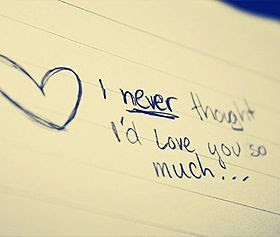 I never thought
I'd love you so
much...